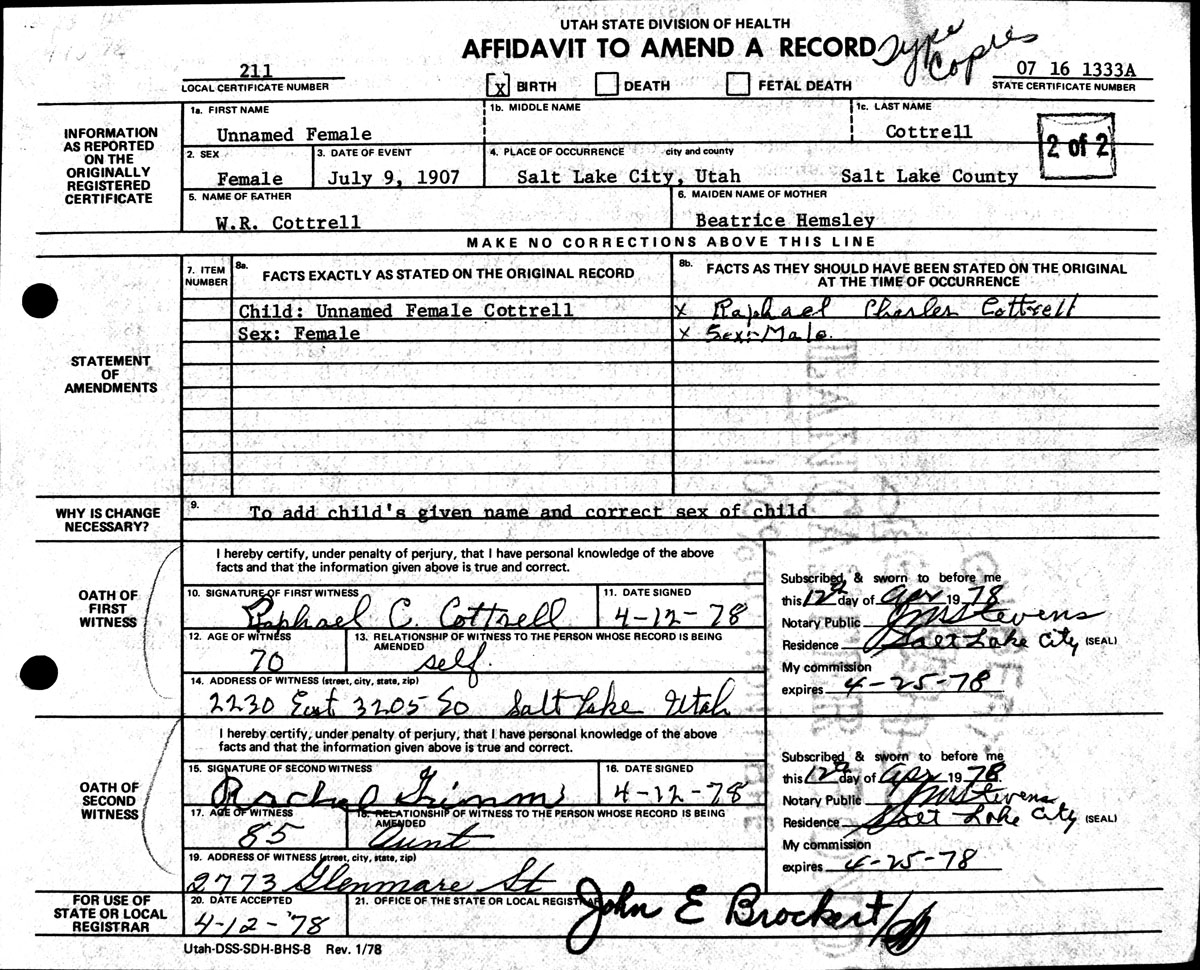 UTAH STATE DIVISION OF HEALTH
AFFIDAVIT TO AMEND A RECORD
Type Copies
211
LOCAL CERTIFICATE NUMBER
[x] BIRTH DEATH FETAL DEATH
07 16 1333A
STATE CERTIFICATE NUMBER
INFORMATION AS REPORTED ON THE ORIGINALLY REGISTERED CERTIFICATE
1a. FIRST NAME 1b. MIDDLE NAME 1c. LAST NAME
Unnamed Female Cottrell
2 of 2
2. SEX 3. DATE OF EVENT 4. PLACE OF OCCURRENCE city and county
Female July 9, 1907 Salt Lake City, Utah Salt Lake County
5. NAME OF FATHER 6. MAIDEN NAME OF MOTHER
W.R. Cottrell Beatrice Hemsley
MAKE NO CORRECTIONS ABOVE THIS LINE
STATEMENT OF AMENDMENTS
7. ITEM NUMBER
8a. FACTS EXACTLY AS STATED ON THE ORIGINAL RECORD
8b. FACTS AS THEY SHOULD HAVE BEEN STATED ON THE ORIGINAL AT THE TIME OF OCCURRENCE
Child: Unnamed Female Cottrell x Raphael Charles Cottrell
Sex: Female x Sex:-Male.
WHY IS CHANGE NECESSARY?
9. To add child's given name and correct sex of child
OATH OF FIRST WITNESS
I hereby certify, under penalty of perjury, that I have personal knowledge of the above
facts and that the information given above is true and correct.
10. SIGNATURE OF FIRST WITNESS 11. DATE SIGNED
Raphael C. Cottrell 4-12-78
12. AGE OF WITNESS 13. RELATIONSHIP OF WITNESS TO THE PERSON WHOSE RECORD IS BEING AMENDED
70 self.
14. ADDRESS OF WITNESS (street, city, state, zip)
2230 East 3205 So Salt Lake Utah
Subscribed & sworn to before me
this 12th day of Apr 1978
Notary Public JMStevens
Residence Salt Lake City (SEAL)
My commission
expires 4-25-78
OATH OF SECOND WITNESS
I hereby certify, under penalty of perjury, that I have personal knowledge of the above
facts and that the information given above is true and correct.
15. SIGNATURE OF SECOND WITNESS 16. DATE SIGNED
Rachel Grimm 4-12-78
17. AGE OF WITNESS 18. RELATIONSHIP OF WITNESS TO THE PERSON WHOSE RECORD IS BEING AMENDED
85 Aunt
19. ADDRESS OF WITNESS (street, city, state, zip)
2773 Glenmare St
Subscribed & sworn to before me
this 12th day of Apr 1978
Notary Public JMStevens
Residence Salt Lake City (SEAL)
My commission
expires 4-25-78
FOR USE OF STATE OR LOCAL REGISTRAR
20. DATE ACCEPTED 21. OFFICE OF THE STATE OR LOCAL REGISTRAR
4-12-'78 John E Brockert
Utah-DSS-SDH-BHS-8 Rev. 1/78